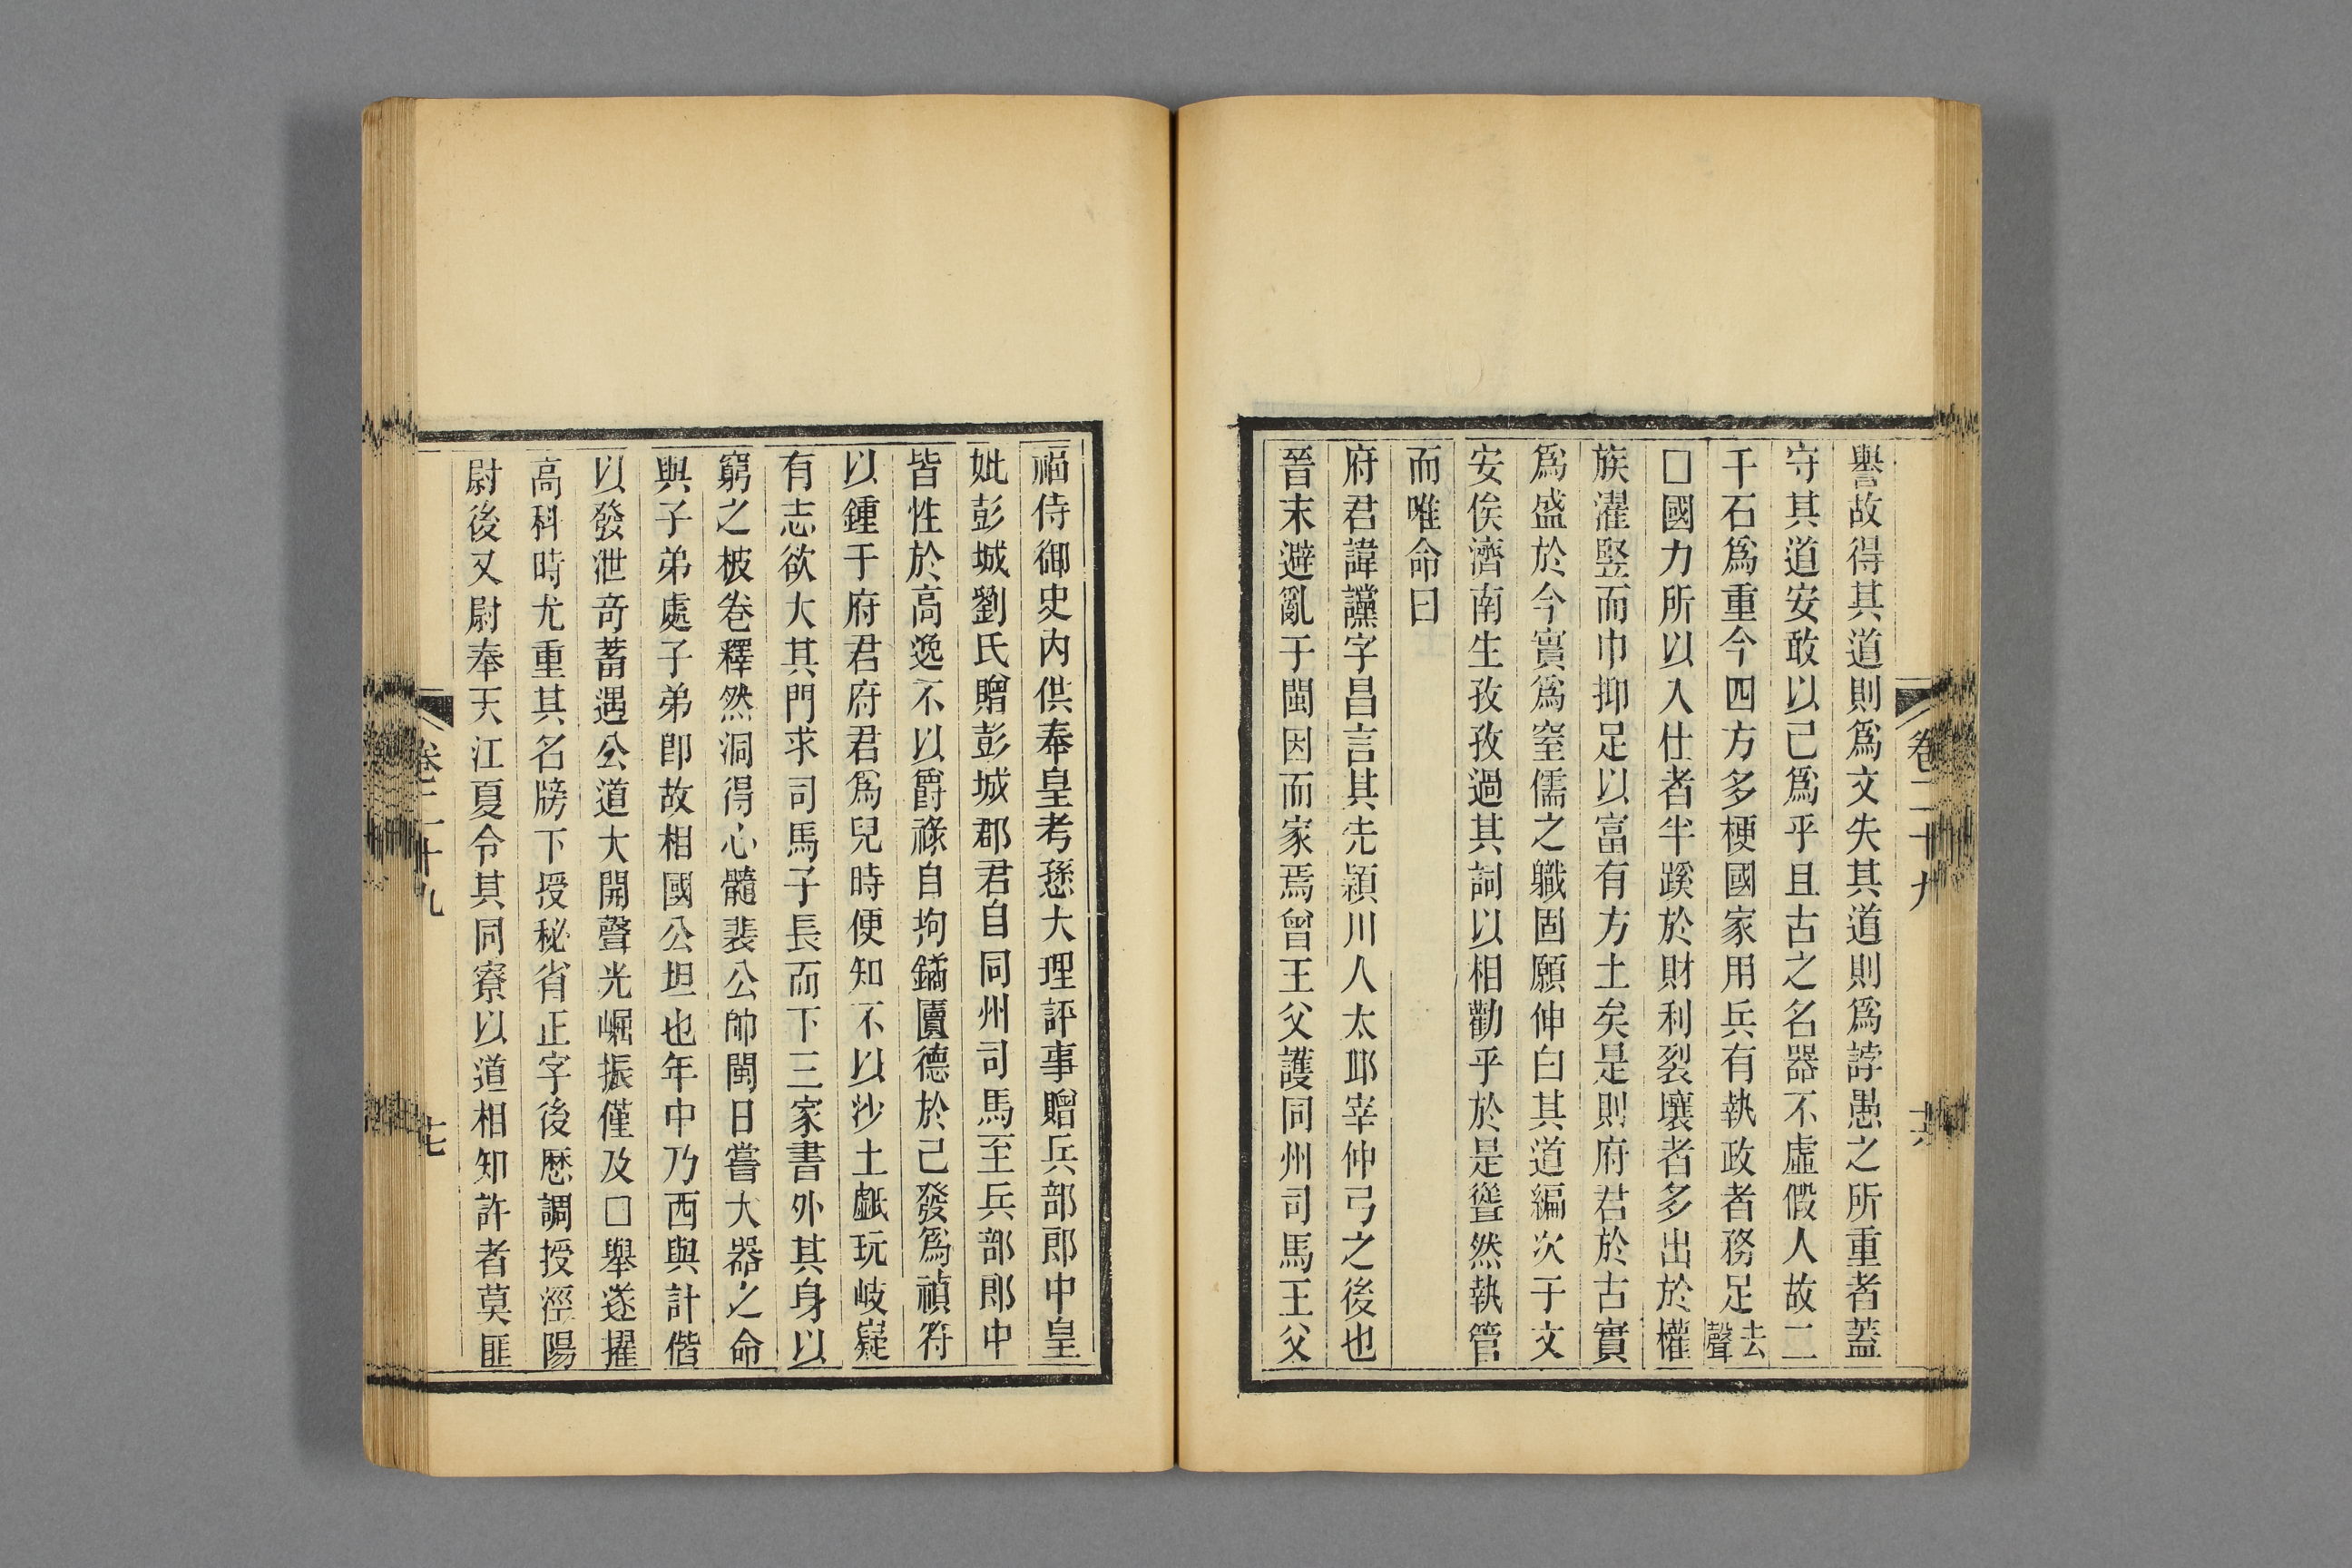 譽故得其道則爲文失其道則爲誖愚之所重者蓋
守其道安敢以己爲乎且古之名器不虛假人故二
千石爲重今四方多梗國家用兵有執政者務足去聲
□國力所以入仕者半蹊於財利裂壤者多出於權
族濯竪而巾抑足以富有方土矣是則府君於古實
爲盛於今實爲窒儒之職固願伸白其道編次于文
安俟濟南生孜孜過其詞以相勸乎於是聳然執管
而唯命曰
府君諱讜字昌言其先潁川人太邱宰仲弓之後也
晉末避亂于閩因而家焉曾王父護同州司馬王父
卷二十九
十六
福侍御史內供奉皇考愻大理評事贈兵部郎中皇
妣彭城劉氏贈彭城郡君自同州司馬至兵部郎中
皆性於高逸不以爵祿自拘鐍匵德於己發爲禎符
以鍾于府君府君爲兒時便知不以沙土戲玩岐嶷
有志欲大其門求司馬子長而下三家書外其身以
窮之披卷釋然洞得心髓裴公帥閩日嘗大器之命
與子弟處子弟卽故相國公坦也年中乃西與計偕
以發泄奇蓄遇公道大開聲光崛振僅及□舉遂擢
高科時尤重其名牓下授秘省正字後歷調授涇陽
尉後又尉奉天江夏令其同寮以道相知許者莫匪
卷二十九
十七